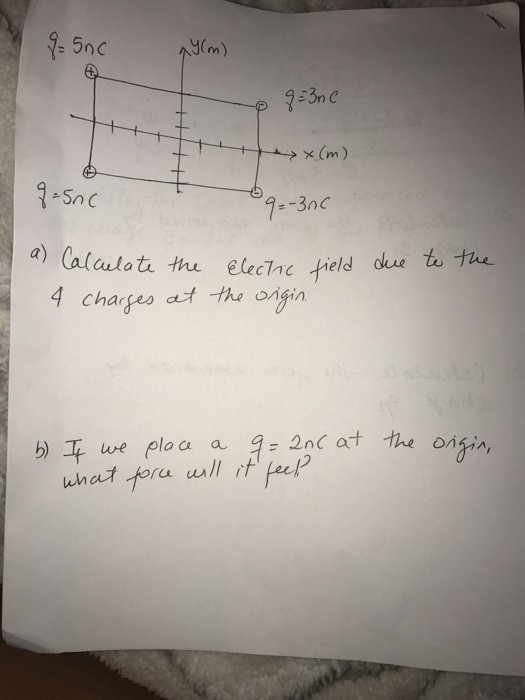 q= 5nC
y(m)
q=3nC
x(m)
q=5nC
q=-3nC
a) Calculate the Electric field due to the
4 charges at the origin
b) If we place a q= 2nC at the origin,
what force will it feel?